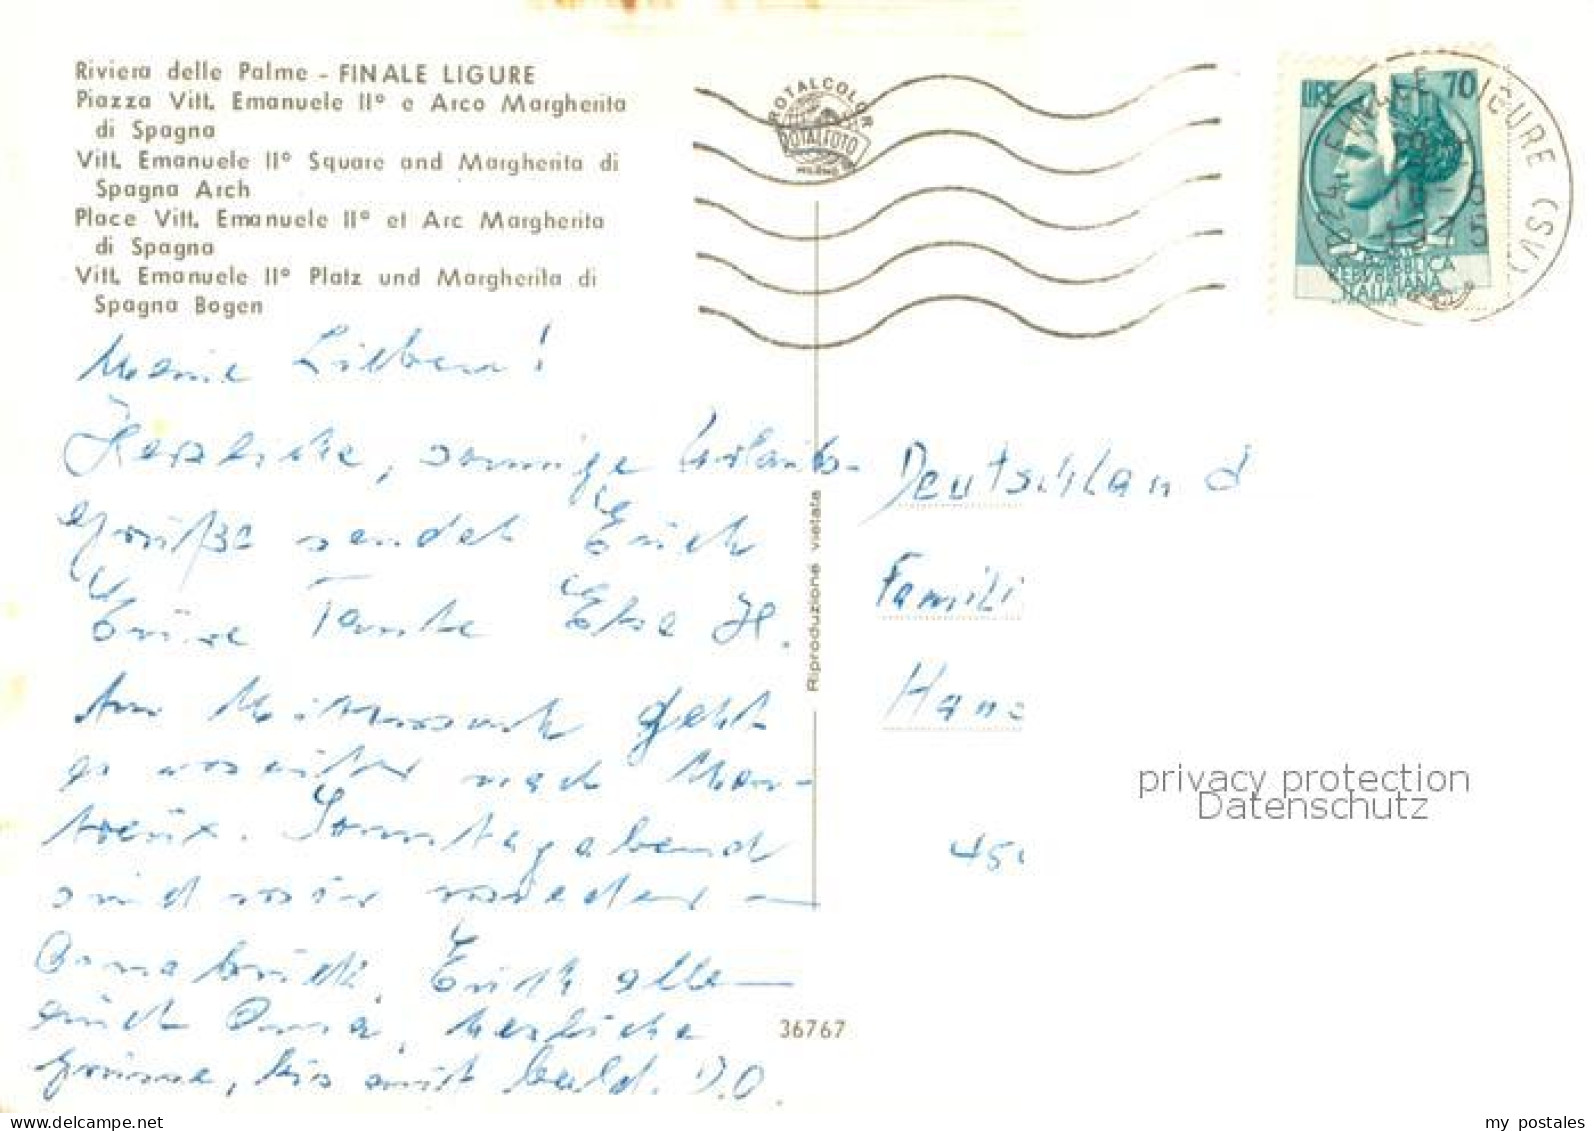 Riviera delle Palme - FINALE LIGURE
Piazza Vitt. Emanuele II° e Arco Margherita
di Spagna
Vitt. Emanuele II° Square and Margherita di
Spagna Arch
Place Vitt. Emanuele II° et Arc Margherita
di Spagna
Vitt. Emanuele II° Platz und Margherita di
Spagna Bogen
ROTALCOLOR
ROTALFOTO
MILANO
LIRE 70
REPUBBLICA
ITALIANA
LIGURE (SV)
1975
Meine Lieben!
Herzliche, sonnige Urlaubs-
grüße sendet Euch
Eure Tante Else H.
Am Mittwoch geht
es weiter nach Mon-
treux. Sonntagabend
sind wir wieder
Osnabrück. Euch alle
auch Oma, herzliche
Grüsse, bis auf bald. D.O.
Riproduzione vietata
36767
Deutschland
Famili
Hans
45
privacy protection
Datenschutz
my postales